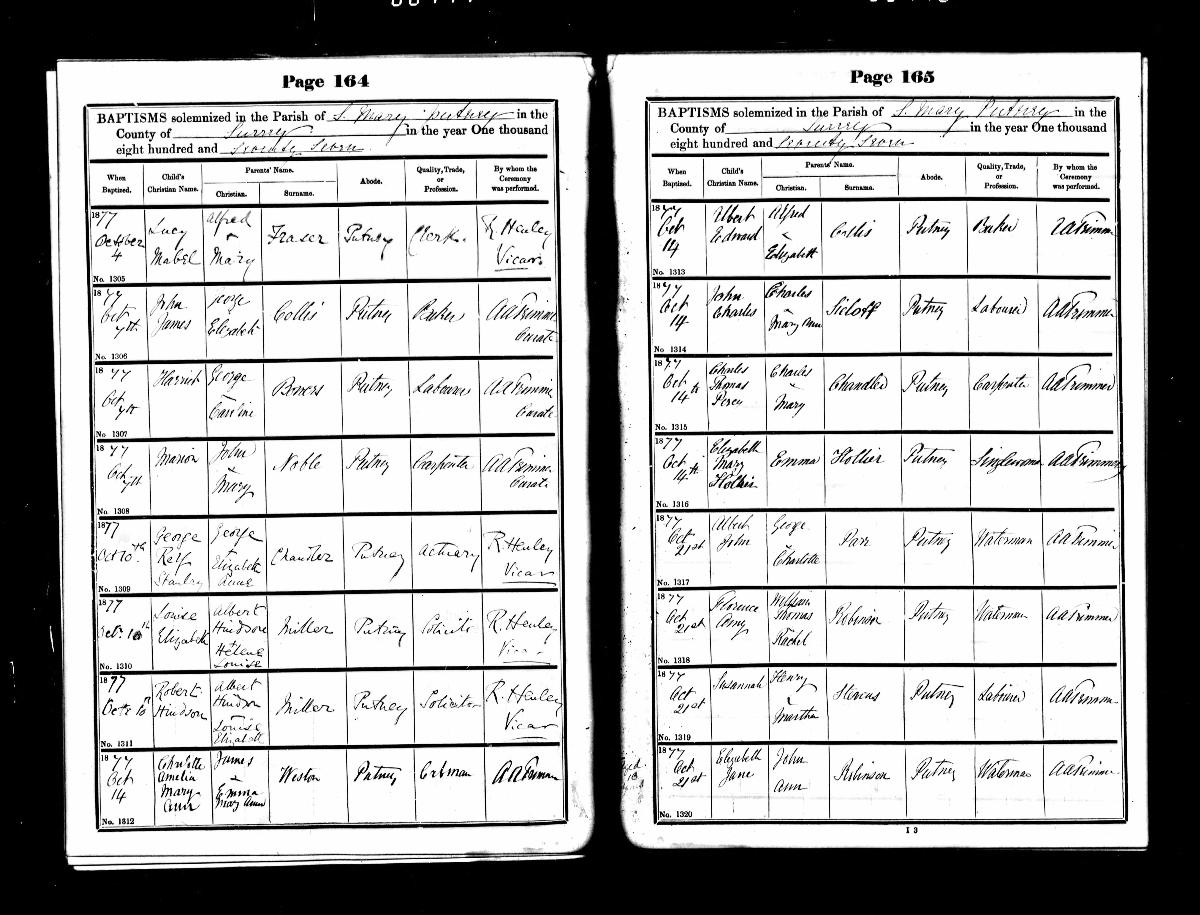 Page 164
BAPTISMS solemnized in the Parish of S. Mary Putney in the
County of Surrey in the year One thousand
eight hundred and Seventy Seven
When Baptized. Child's Christian Name. Parents' Name. Christian. Surname. Abode. Quality, Trade, or Profession. By whom the Ceremony was performed.
1877 October 4 Lucy Mabel Alfred + Mary Fraser Putney Clerk R. Henley Vicar
No. 1305
1877 Oct 7th John James George Elizabeth Collis Putney Baker AATrimmer Curate
No. 1306
1877 Oct 7th Harriet George + Caroline Bowers Putney Labourer AATrimmer Curate
No. 1307
1877 Oct 7th Marion John + Mary Noble Putney Carpenter AATrimmer Curate
No. 1308
1877 Oct 10th George Stanley George + Elizabeth Anne Chandler Putney Actuary R. Henley Vicar
No. 1309
1877 Oct. 10th Louise Elizabeth Albert Hindson + Helene Louise Miller Putney Solicitor R. Henley Vicar
No. 1310
1877 Octr 10th Robert Hindson Albert Hindson + Louise Elizabeth Miller Putney Solicitor R. Henley Vicar
No. 1311
1877 Oct 14 Charlotte Amelia Mary Ann James + Emma Mary Ann Weston Putney AATrimmer
No. 1312
Page 165
BAPTISMS solemnized in the Parish of S. Mary Putney in the
County of Surrey in the year One thousand
eight hundred and Seventy Seven
When Baptized. Child's Christian Name. Parents' Name. Christian. Surname. Abode. Quality, Trade, or Profession. By whom the Ceremony was performed.
1877 Oct 14 Albert Edward Alfred + Elizabeth Collis Putney Baker AATrimmer
No. 1313
1877 Oct 14 John Charles Charles + Mary Ann Putney Labourer AATrimmer
No. 1314
1877 Oct 14th Charles Thomas Percy Charles + Mary Chandler Putney Carpenter AATrimmer
No. 1315
1877 Oct 14th Elizabeth Mary Hollier Emma Hollier Putney Singlewoman AATrimmer
No. 1316
1877 Oct 21st Albert John George + Charlotte Putney Waterman AATrimmer
No. 1317
1877 Oct 21st Florence Amy William Thomas + Rachel Robinson Putney Waterman AATrimmer
No. 1318
1877 Oct 21st Susannah Henry + Martha Stevens Putney Labourer AATrimmer
No. 1319
1877 Oct 21st Elizabeth Jane John Ann Robinson Putney Waterman AATrimmer
No. 1320
I 3